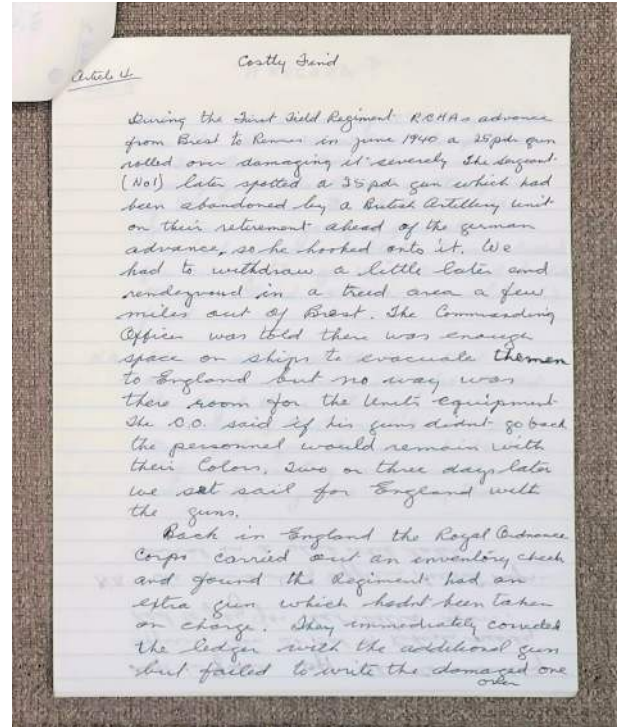 Costly Find
Article 4
During the First Field Regiment RCHAs advance
from Brest to Rennes in June 1940 a 25 pdr gun
rolled over damaging it severely The Sergeant
(No1) later spotted a 25 pdr gun which had
been abandoned by a British Artillery unit
on their retirement ahead of the german
advance, so he hooked onto it. We
had to withdraw a little later and
rendezvoud in a treed area a few
miles out of Brest. The Commanding
Officer was told there was enough
space on ships to evacuate the men
to England but no way was
there room for the Units equipment.
The C.O. said if his guns didnt go back
the personnel would remain with
their Colors. Two or three days later
we set sail for England with
the guns.
Back in England the Royal Ordnance
Corps carried out an inventory check
and found the Regiment had an
extra gun which hadnt been taken
on charge. They immediately
the ledger with the additional gun
but failed to write the damaged one
over